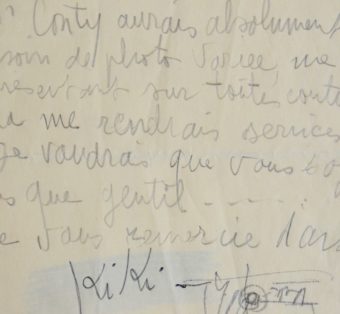 Conty aurais absolument
soin de photo variée, me
reservant sur toutes
me rendrais service
je voudrais que vous
que gentil - - - - .
vous remercie d'av
Kiki -